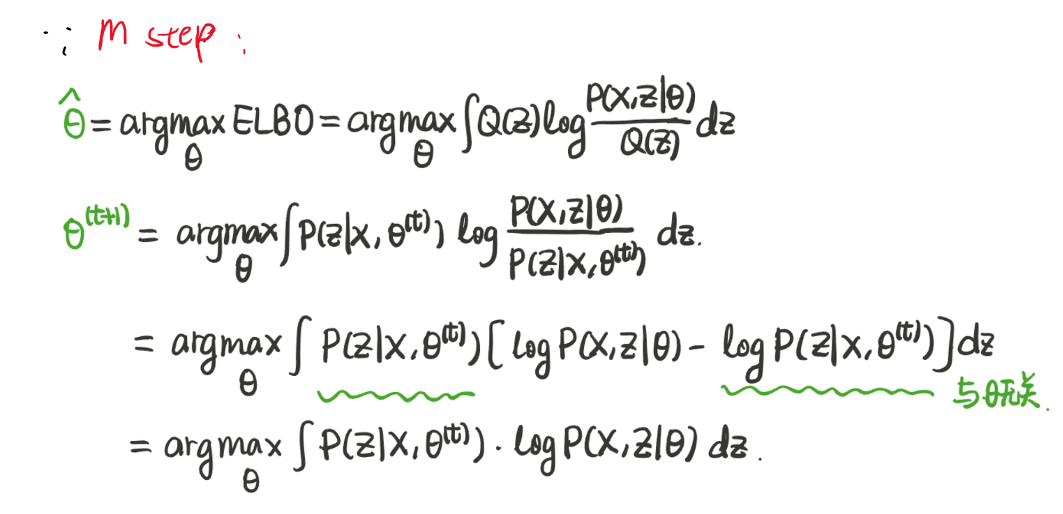 ∵ M step :
θ̂ = argmax_θ ELBO = argmax_θ ∫Q(z) log P(X,z|θ)/Q(z) dz
θ^(t+1) = argmax_θ ∫P(z|x,θ^(t)) log P(X,z|θ)/P(z|x,θ^(t)) dz.
= argmax_θ ∫ P(z|x,θ^(t)) [log P(X,z|θ) - log P(z|x,θ^(t))] dz
与θ无关.
= argmax_θ ∫ P(z|x,θ^(t)) · log P(X,z|θ) dz.